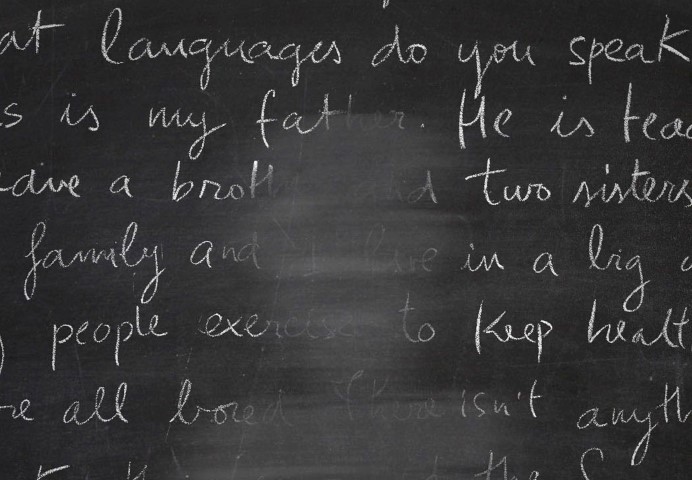 at languages do you speak
s is my father. He is teac
ave a broth and two sisters
family and I live in a big
people exercise to keep healt
re all bored There isn't anyth
the S